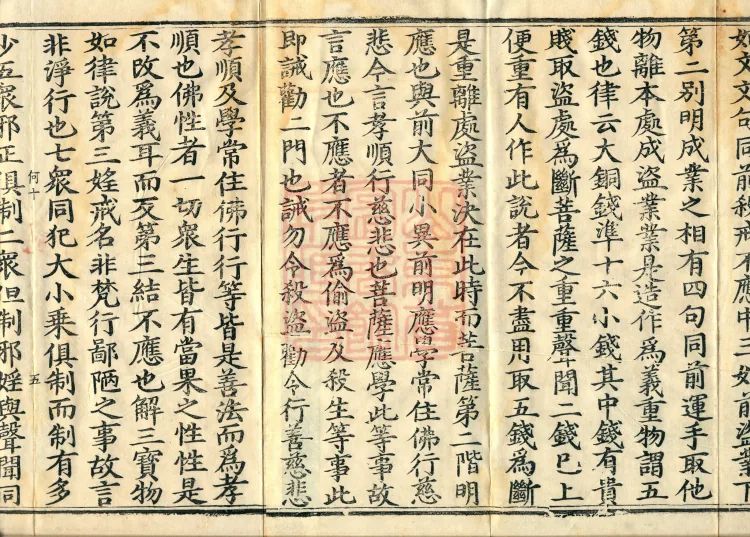 如文文句同前殺戒不應中三如前盜業下
第二別明成業之相有四句同前運手取他
物離本處成盜業業是造作為義重物謂五
錢也律云大銅錢準十六小錢其中錢有貴
賤取盜處為斷菩薩之重重聲聞二錢巳上
便重有人作此說者今不盡用取五錢為斷
是重離處盜業決在此時而菩薩第二階明
應也與前大同小異前明應學常住佛行慈
悲今言孝順行慈悲也菩薩應學此等事故
言應也不應者不應為偷盜及殺生等事此
即誡勸二門也誡勿令殺盜勸令行善慈悲
孝順及學常住佛行行等皆是善法而為孝
順也佛性者一切眾生皆有當果之性性是
不改為義耳而反第三結不應也解三寶物
如律說第三婬戒名非梵行鄙陋之事故言
非淨行也七眾同犯大小乘俱制而制有多
何十 五
少五眾邪正俱制二眾但制邪婬與聲聞同